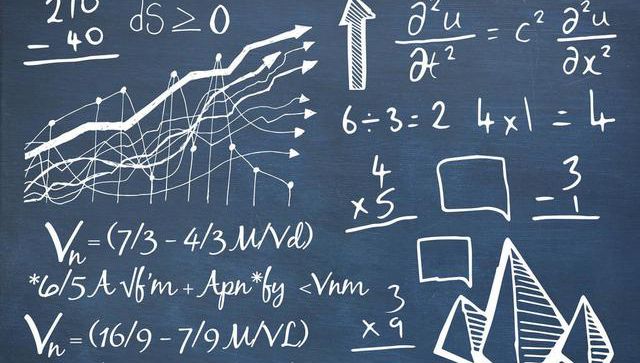 210
- 40
dS ≥ 0
∂²u/∂t² = c² ∂²u/∂x²
6÷3=2 4x1=4
4
x5
3
-1
Vn=(7/3-4/3M/Vd)
*6/5 A √f'm + Apn*fy <Vnm
Vn=(16/9-7/9M/VL)
3
x9